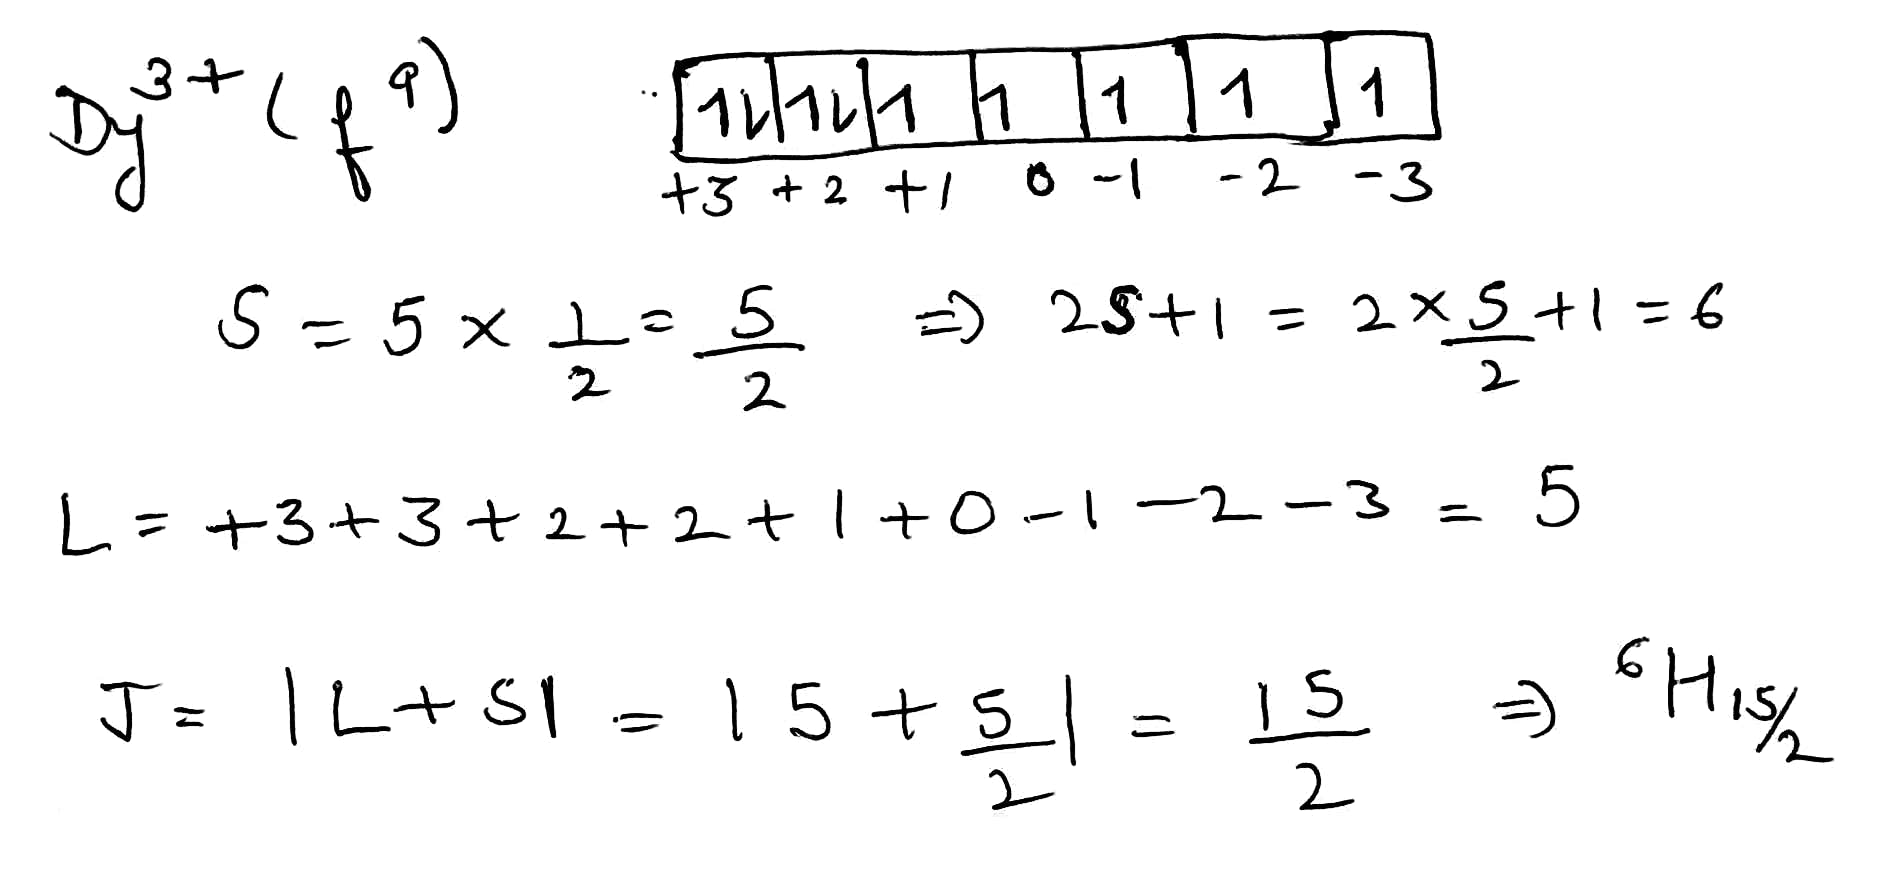 Dy³⁺ (f⁹) 1↓ 1↓ 1 1 1 1 1
+3 +2 +1 0 -1 -2 -3
S = 5 × 1/2 = 5/2 ⇒ 2S+1 = 2×5/2+1 = 6
L = +3+3+2+2+1+0-1-2-3 = 5
J = |L+S| = |5+5/2| = 15/2 ⇒ ⁶H₁₅/₂